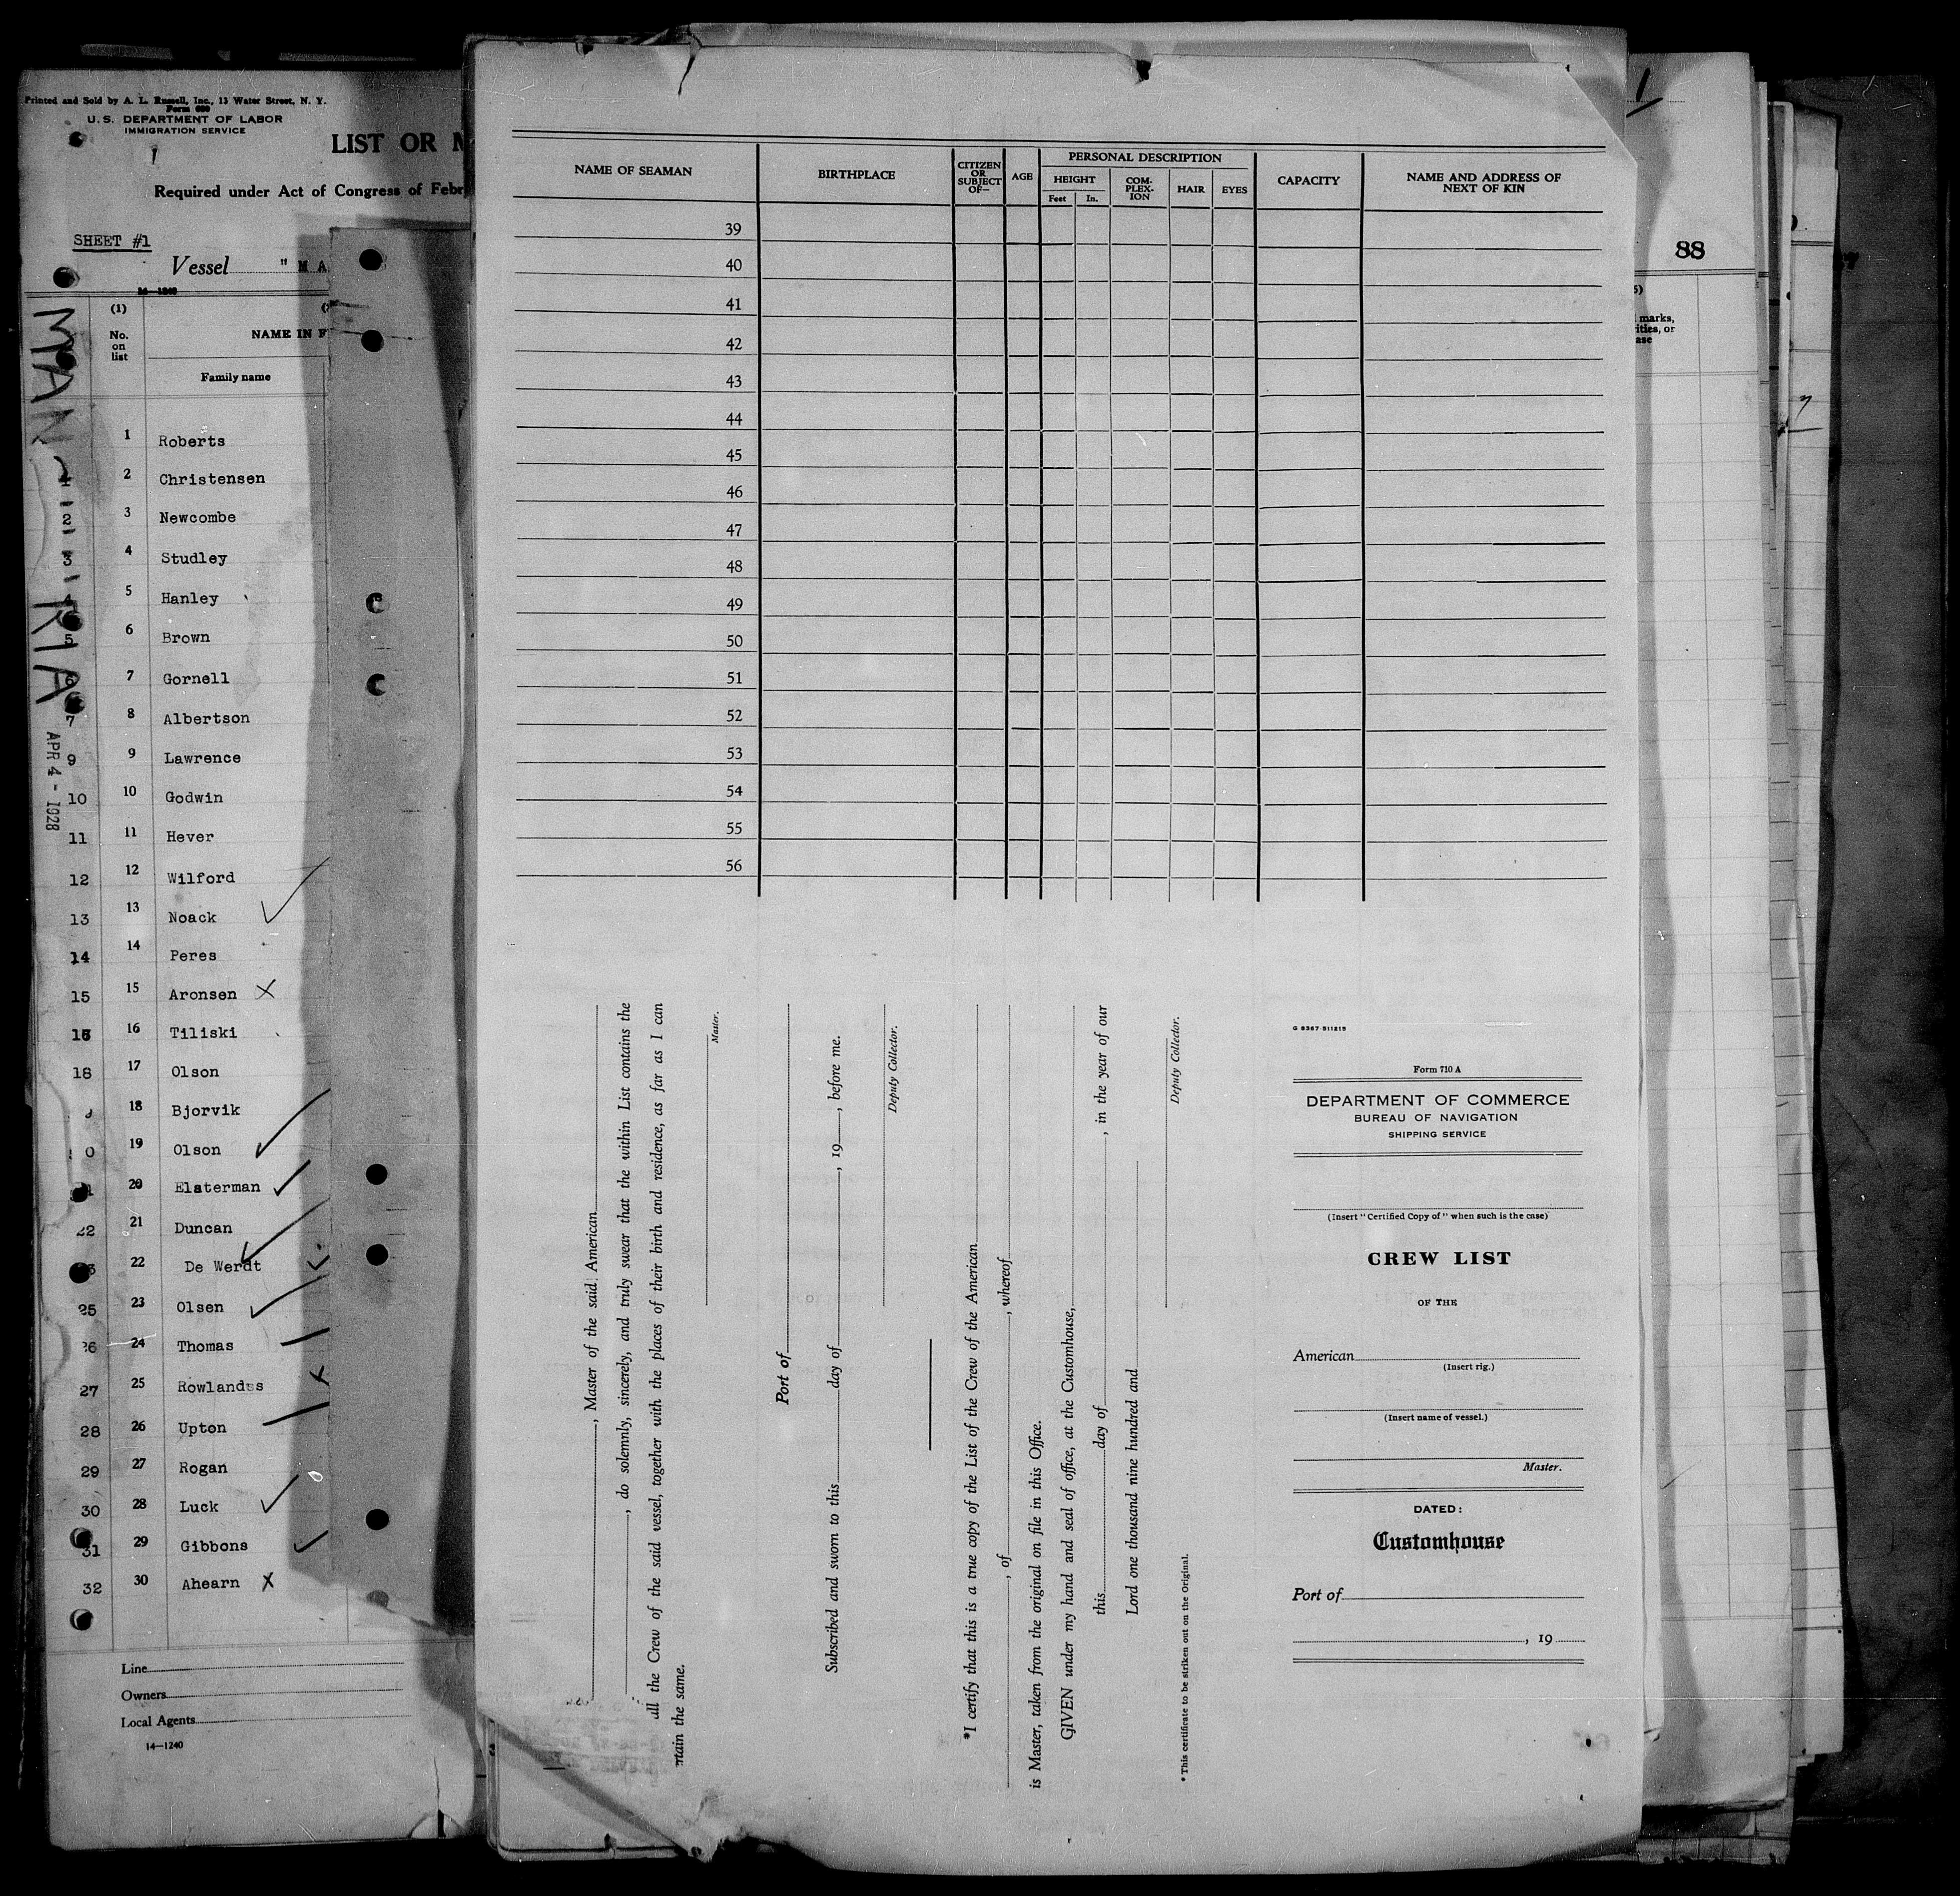 Printed and Sold by A. L. Russell, Inc., 13 Water Street, N. Y.
Form 680
U. S. DEPARTMENT OF LABOR
IMMIGRATION SERVICE
LIST OR M
Required under Act of Congress of Febr
SHEET #1
Vessel " M A
14—1240
(1)
No. on list
NAME IN F
Family name
1 Roberts
2 Christensen
3 Newcombe
4 Studley
5 Hanley
6 Brown
7 Gornell
8 Albertson
9 Lawrence
10 Godwin
11 Hever
12 Wilford
13 Noack
14 Peres
15 Aronsen X
16 Tiliski
17 Olson
18 Bjorvik
19 Olson
20 Elsterman
21 Duncan
22 De Werdt
23 Olsen
24 Thomas
25 Rowlands
26 Upton
27 Rogan
28 Luck
29 Gibbons
30 Ahearn X
1
2
3
5
7
9
10
11
12
13
14
15
16
18
22
25
26
27
28
29
30
31
32
APR 4 - 1928
Line
Owners
Local Agents
14—1240
NAME OF SEAMAN
BIRTHPLACE
CITIZEN OR SUBJECT OF—
AGE
PERSONAL DESCRIPTION
HEIGHT
Feet
In.
COM-PLEX-ION
HAIR
EYES
CAPACITY
NAME AND ADDRESS OF NEXT OF KIN
39
40
41
42
43
44
45
46
47
48
49
50
51
52
53
54
55
56
, Master of the said American
, do solemnly, sincerely, and truly swear that the within List contains the
all the Crew of the said vessel, together with the places of their birth and residence, as far as I can
rtain the same.
Master.
Port of
Subscribed and sworn to this day of , 19 , before me.
Deputy Collector.
*I certify that this is a true copy of the List of the Crew of the American
, of , whereof
is Master, taken from the original on file in this Office.
GIVEN under my hand and seal of office, at the Customhouse,
this day of , in the year of our
Lord one thousand nine hundred and
Deputy Collector.
*This certificate to be striken out on the Original.
G 8367 511215
Form 710 A
DEPARTMENT OF COMMERCE
BUREAU OF NAVIGATION
SHIPPING SERVICE
(Insert "Certified Copy of" when such is the case)
CREW LIST
OF THE
American
(Insert rig.)
(Insert name of vessel.)
Master.
DATED:
Customhouse
Port of
, 19
1
88
marks,
ities, or
ase
7